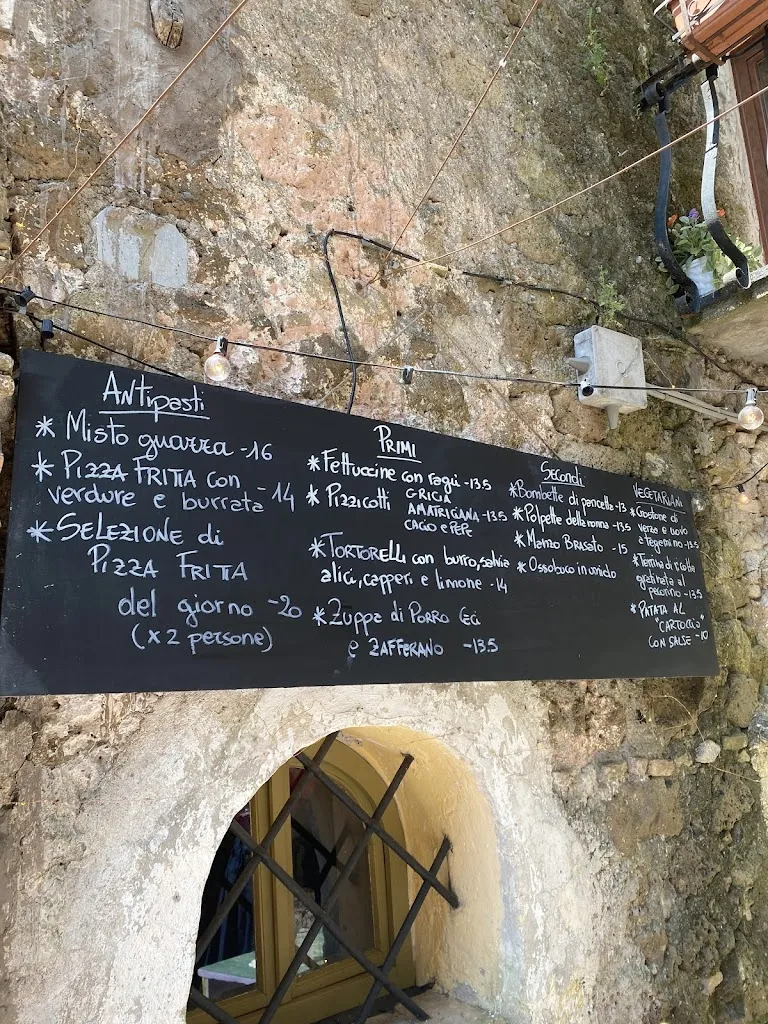 ANTIPASTI
* Misto guazza - 16
* PIZZA FRITTA con
verdure e burrata - 14
* SELEZIONE di
PIZZA FRITTA
del giorno - 20
(x 2 persone)
PRIMI
* Fettuccine con ragù - 13.5
* Pizzicotti GRICIA
AMATRICIANA - 13.5
CACIO e PEPE
* TORTORELLI con burro, salvia
alici, capperi e limone - 14
* Zuppa di PORRO Ceci
e ZAFFERANO - 13.5
Secondi
* Bombette di pancetta - 13
* Polpette della nonna - 13.5
* Manzo BRASATO - 15
* Ossobuco in umido
VEGETARIANI
* Crostone di
verza e uovo
a Tegamino - 13.5
* Terrina di ricotta
gratinata al
pecorino - 13.5
* PATATA AL
"CARTOCCIO"
CON SALSE - 10